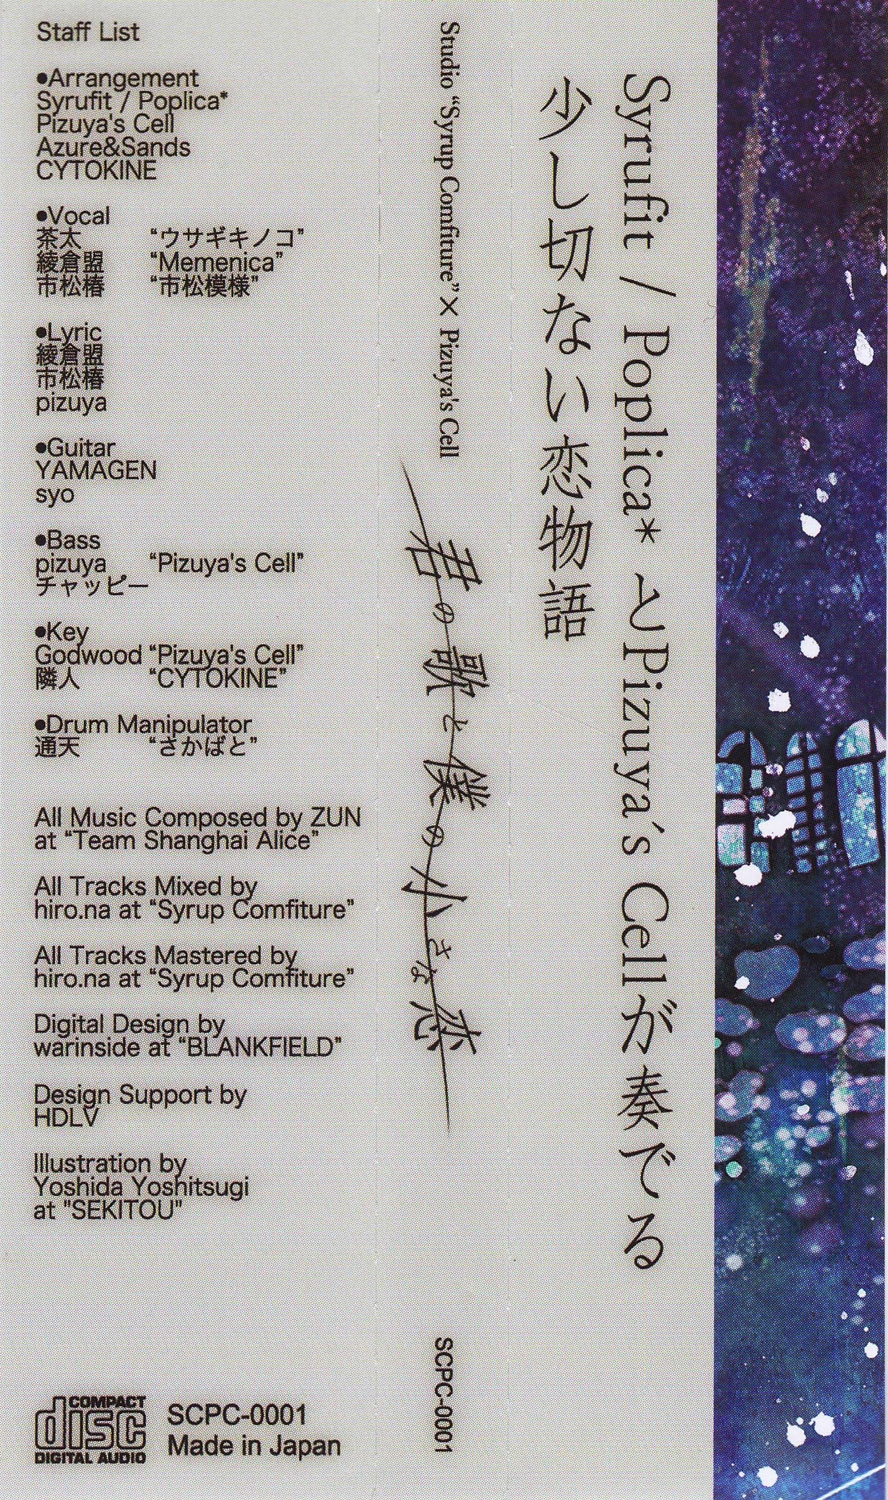 Staff List
●Arrangement
Syrufit / Poplica*
Pizuya's Cell
Azure&Sands
CYTOKINE
●Vocal
茶太 “ウサギキノコ”
綾倉盟 “Memenica”
市松椿 “市松模様”
●Lyric
綾倉盟
市松椿
pizuya
●Guitar
YAMAGEN
syo
●Bass
pizuya “Pizuya's Cell”
チャッピー
●Key
Godwood “Pizuya's Cell”
隣人 “CYTOKINE”
●Drum Manipulator
通天 “さかばと”
All Music Composed by ZUN
at “Team Shanghai Alice”
All Tracks Mixed by
hiro.na at “Syrup Comfiture”
All Tracks Mastered by
hiro.na at “Syrup Comfiture”
Digital Design by
warinside at “BLANKFIELD”
Design Support by
HDLV
Illustration by
Yoshida Yoshitsugi
at "SEKITOU"
COMPACT
disc
DIGITAL AUDIO
SCPC-0001
Made in Japan
Studio “Syrup Comfiture”× Pizuya's Cell
君の歌と僕の小さな恋
SCPC-0001
Syrufit / Poplica* とPizuya's Cellが奏でる
少し切ない恋物語